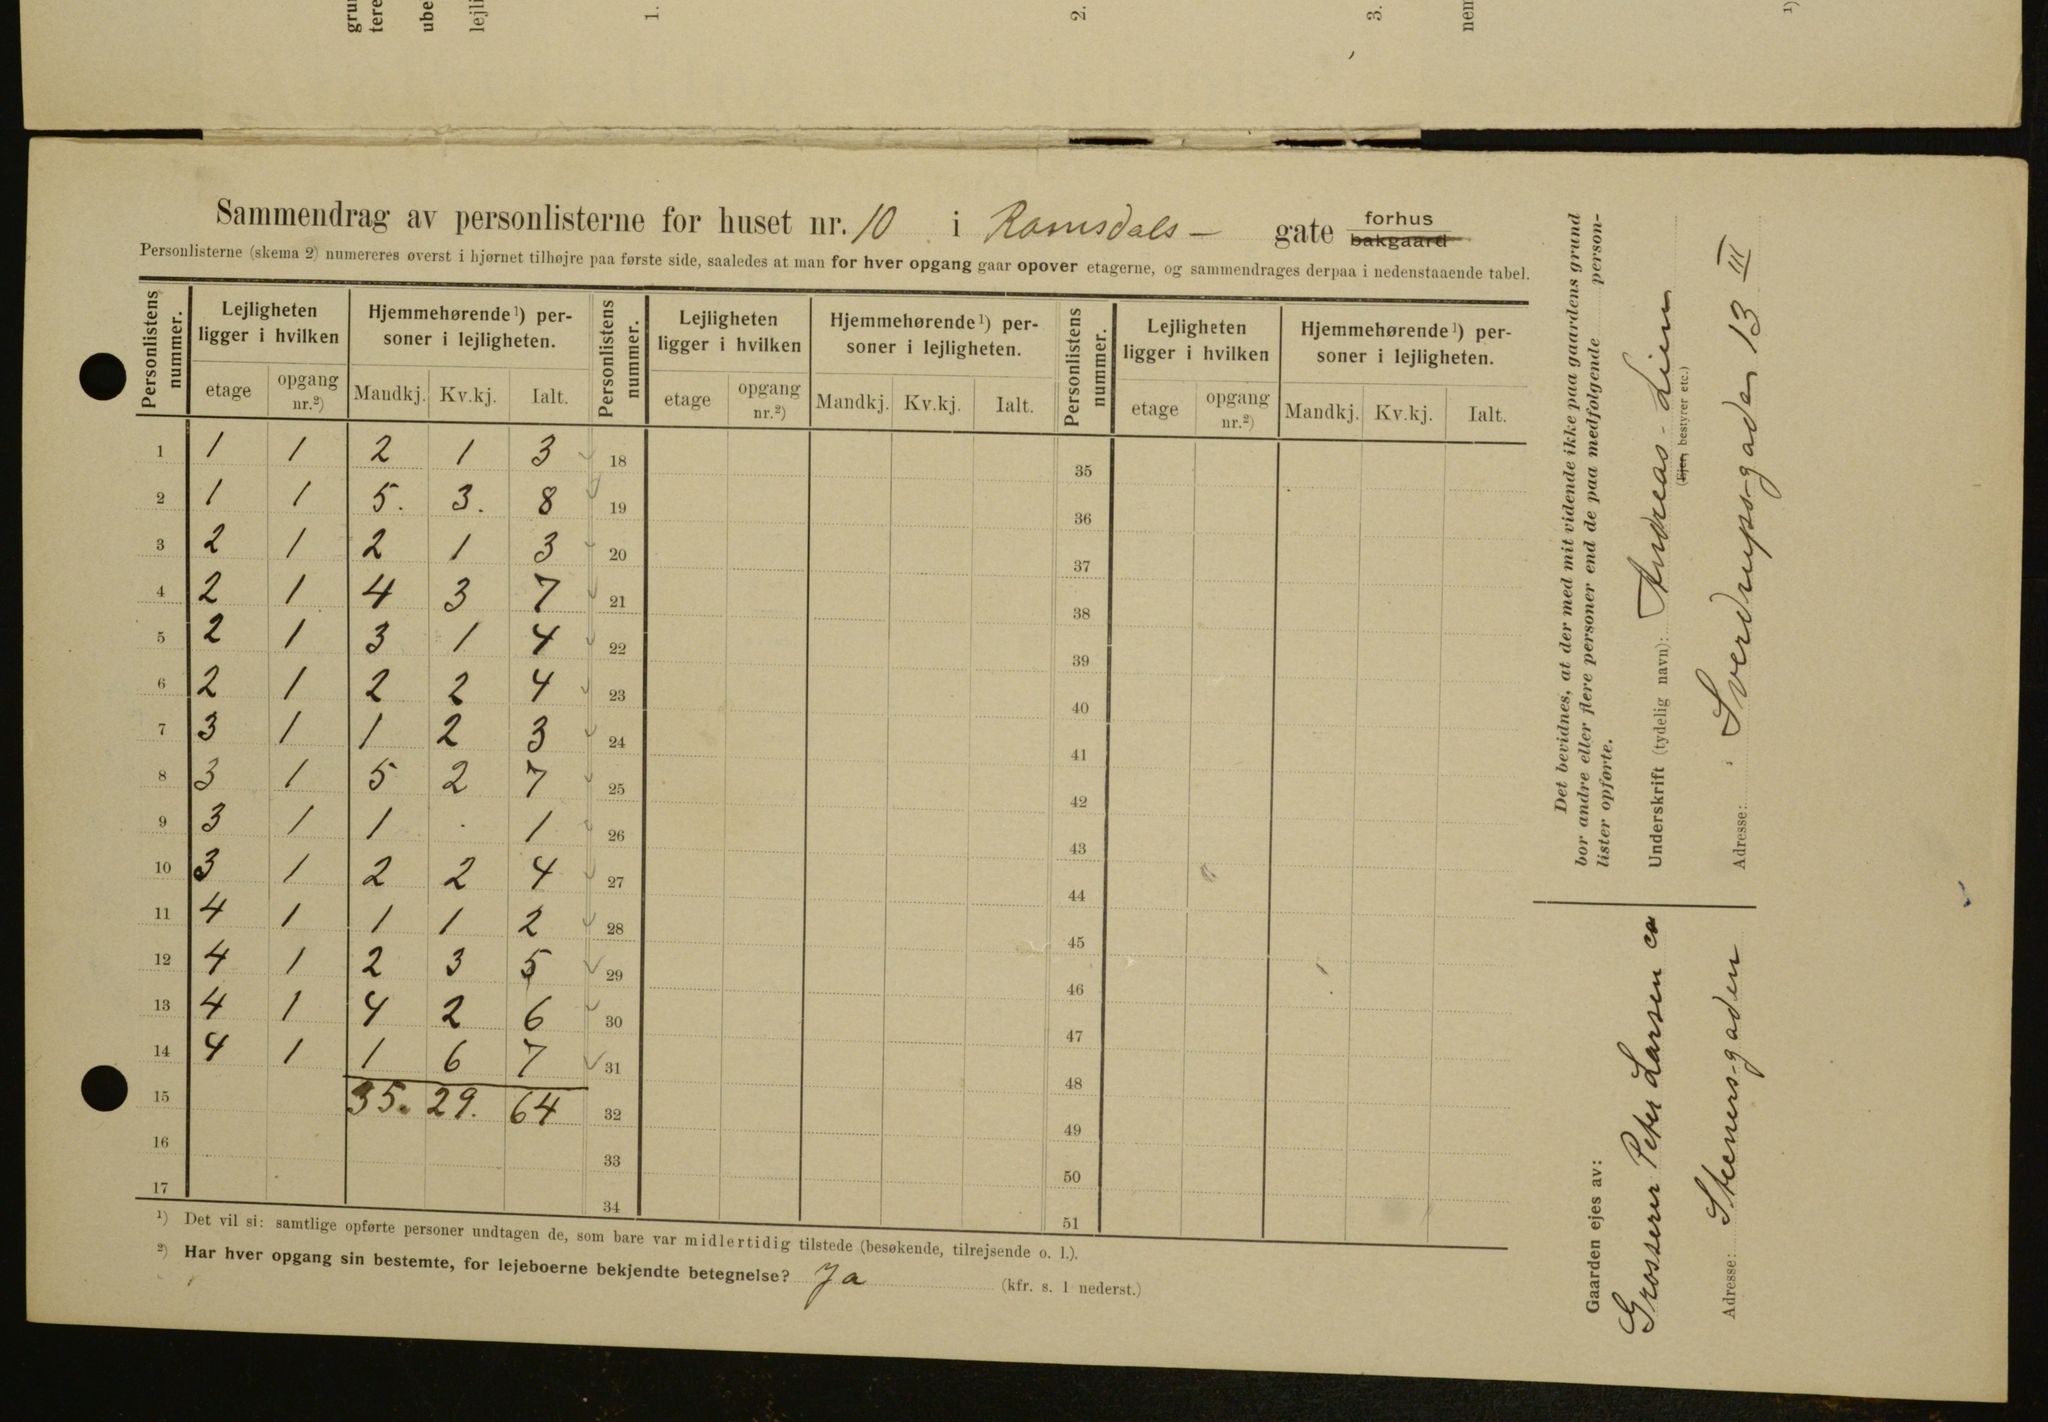 grun
tere
ube
lejli
1.
2.
3.
nem
1)
Sammendrag av personlisterne for huset nr. 10 i Romsdals- gate forhus
bakgaard
Personlisterne (skema 2) numereres øverst i hjørnet tilhøjre paa første side, saaledes at man for hver opgang gaar opover etagerne, og sammendrages derpaa i nedenstaaende tabel.
Personlistens nummer. Lejligheten ligger i hvilken Hjemmehørende¹) personer i lejligheten. Personlistens nummer. Lejligheten ligger i hvilken Hjemmehørende¹) personer i lejligheten. Personlistens nummer. Lejligheten ligger i hvilken Hjemmehørende¹) personer i lejligheten.
etage opgang nr.²) Mandkj. Kv.kj. Ialt. etage opgang nr.²) Mandkj. Kv.kj. Ialt. etage opgang nr.²) Mandkj. Kv.kj. Ialt.
1 1 1 2 1 3 18 35
2 1 1 5. 3. 8 19 36
3 2 1 2 1 3 20 37
4 2 1 4 3 7 21 38
5 2 1 3 1 4 22 39
6 2 1 2 2 4 23 40
7 3 1 1 2 3 24 41
8 3 1 5 2 7 25 42
9 3 1 1 . 1 26 43
10 3 1 2 2 4 27 44
11 4 1 1 1 2 28 45
12 4 1 2 3 5 29 46
13 4 1 4 2 6 30 47
14 4 1 1 6 7 31 48
15 35. 29. 64 32 49
16 33 50
17 34 51
¹) Det vil si: samtlige opførte personer undtagen de, som bare var midlertidig tilstede (besøkende, tilrejsende o. l.).
²) Har hver opgang sin bestemte, for lejeboerne bekjendte betegnelse? Ja (kfr. s. 1 nederst.)
Det bevidnes, at der med mit vidende ikke paa gaardens grund
bor andre eller flere personer end de paa medfølgende person-
lister opførte.
Underskrift (tydelig navn): Andreas Lium
(Ejer, bestyrer etc.)
Adresse: Sverdrups-gaden 13 III
Gaarden ejes av:
Grosserer Peter Larsen ca
Adresse: Steeners-gaden